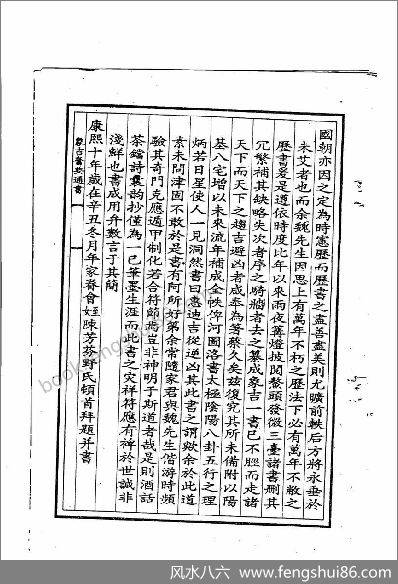 國朝亦因之定為時憲歷而歷書之盡善盡美則尤曠前軼后方將永垂於
未艾者也而余魏先生因思上有萬年不朽之歷法下必有萬年不敝之
歷書爰是道依時度比年以來雨夜篝燈披閱鰲頭發微三臺諸書刪其
冗繁補其缺略失次者序之騎牆者去之纂成象吉一書已不脛而走諸
天下而天下之趨吉避凶者咸奉為蓍蔡久矣茲復究其所未備附以陽
基八宅增以未來流年補成全帙俾河圖洛書太極陰陽八卦五行之理
炳若日星使人一見洞然書曰惠迪吉從逆凶其此書之謂歟余於此道
素未問津固不敢於是書有阿所好第余常隨家君與魏先生偕游時頻
驗其奇門克應遁甲制化若合符節焉豈非神明于斯道者哉是則酒話
茶鐺詩囊韵抄僅為一己筆墨生涯而此書之定祥符應有裨於世誠非
淺鮮也書成用弁數言于其簡
康熙十年歲在辛丑冬月年家眷會姪陳芳芬野氏頓首拜題并書
象吉備要通書
book.fengshui86.com
风水八六 www.fengshui86.com